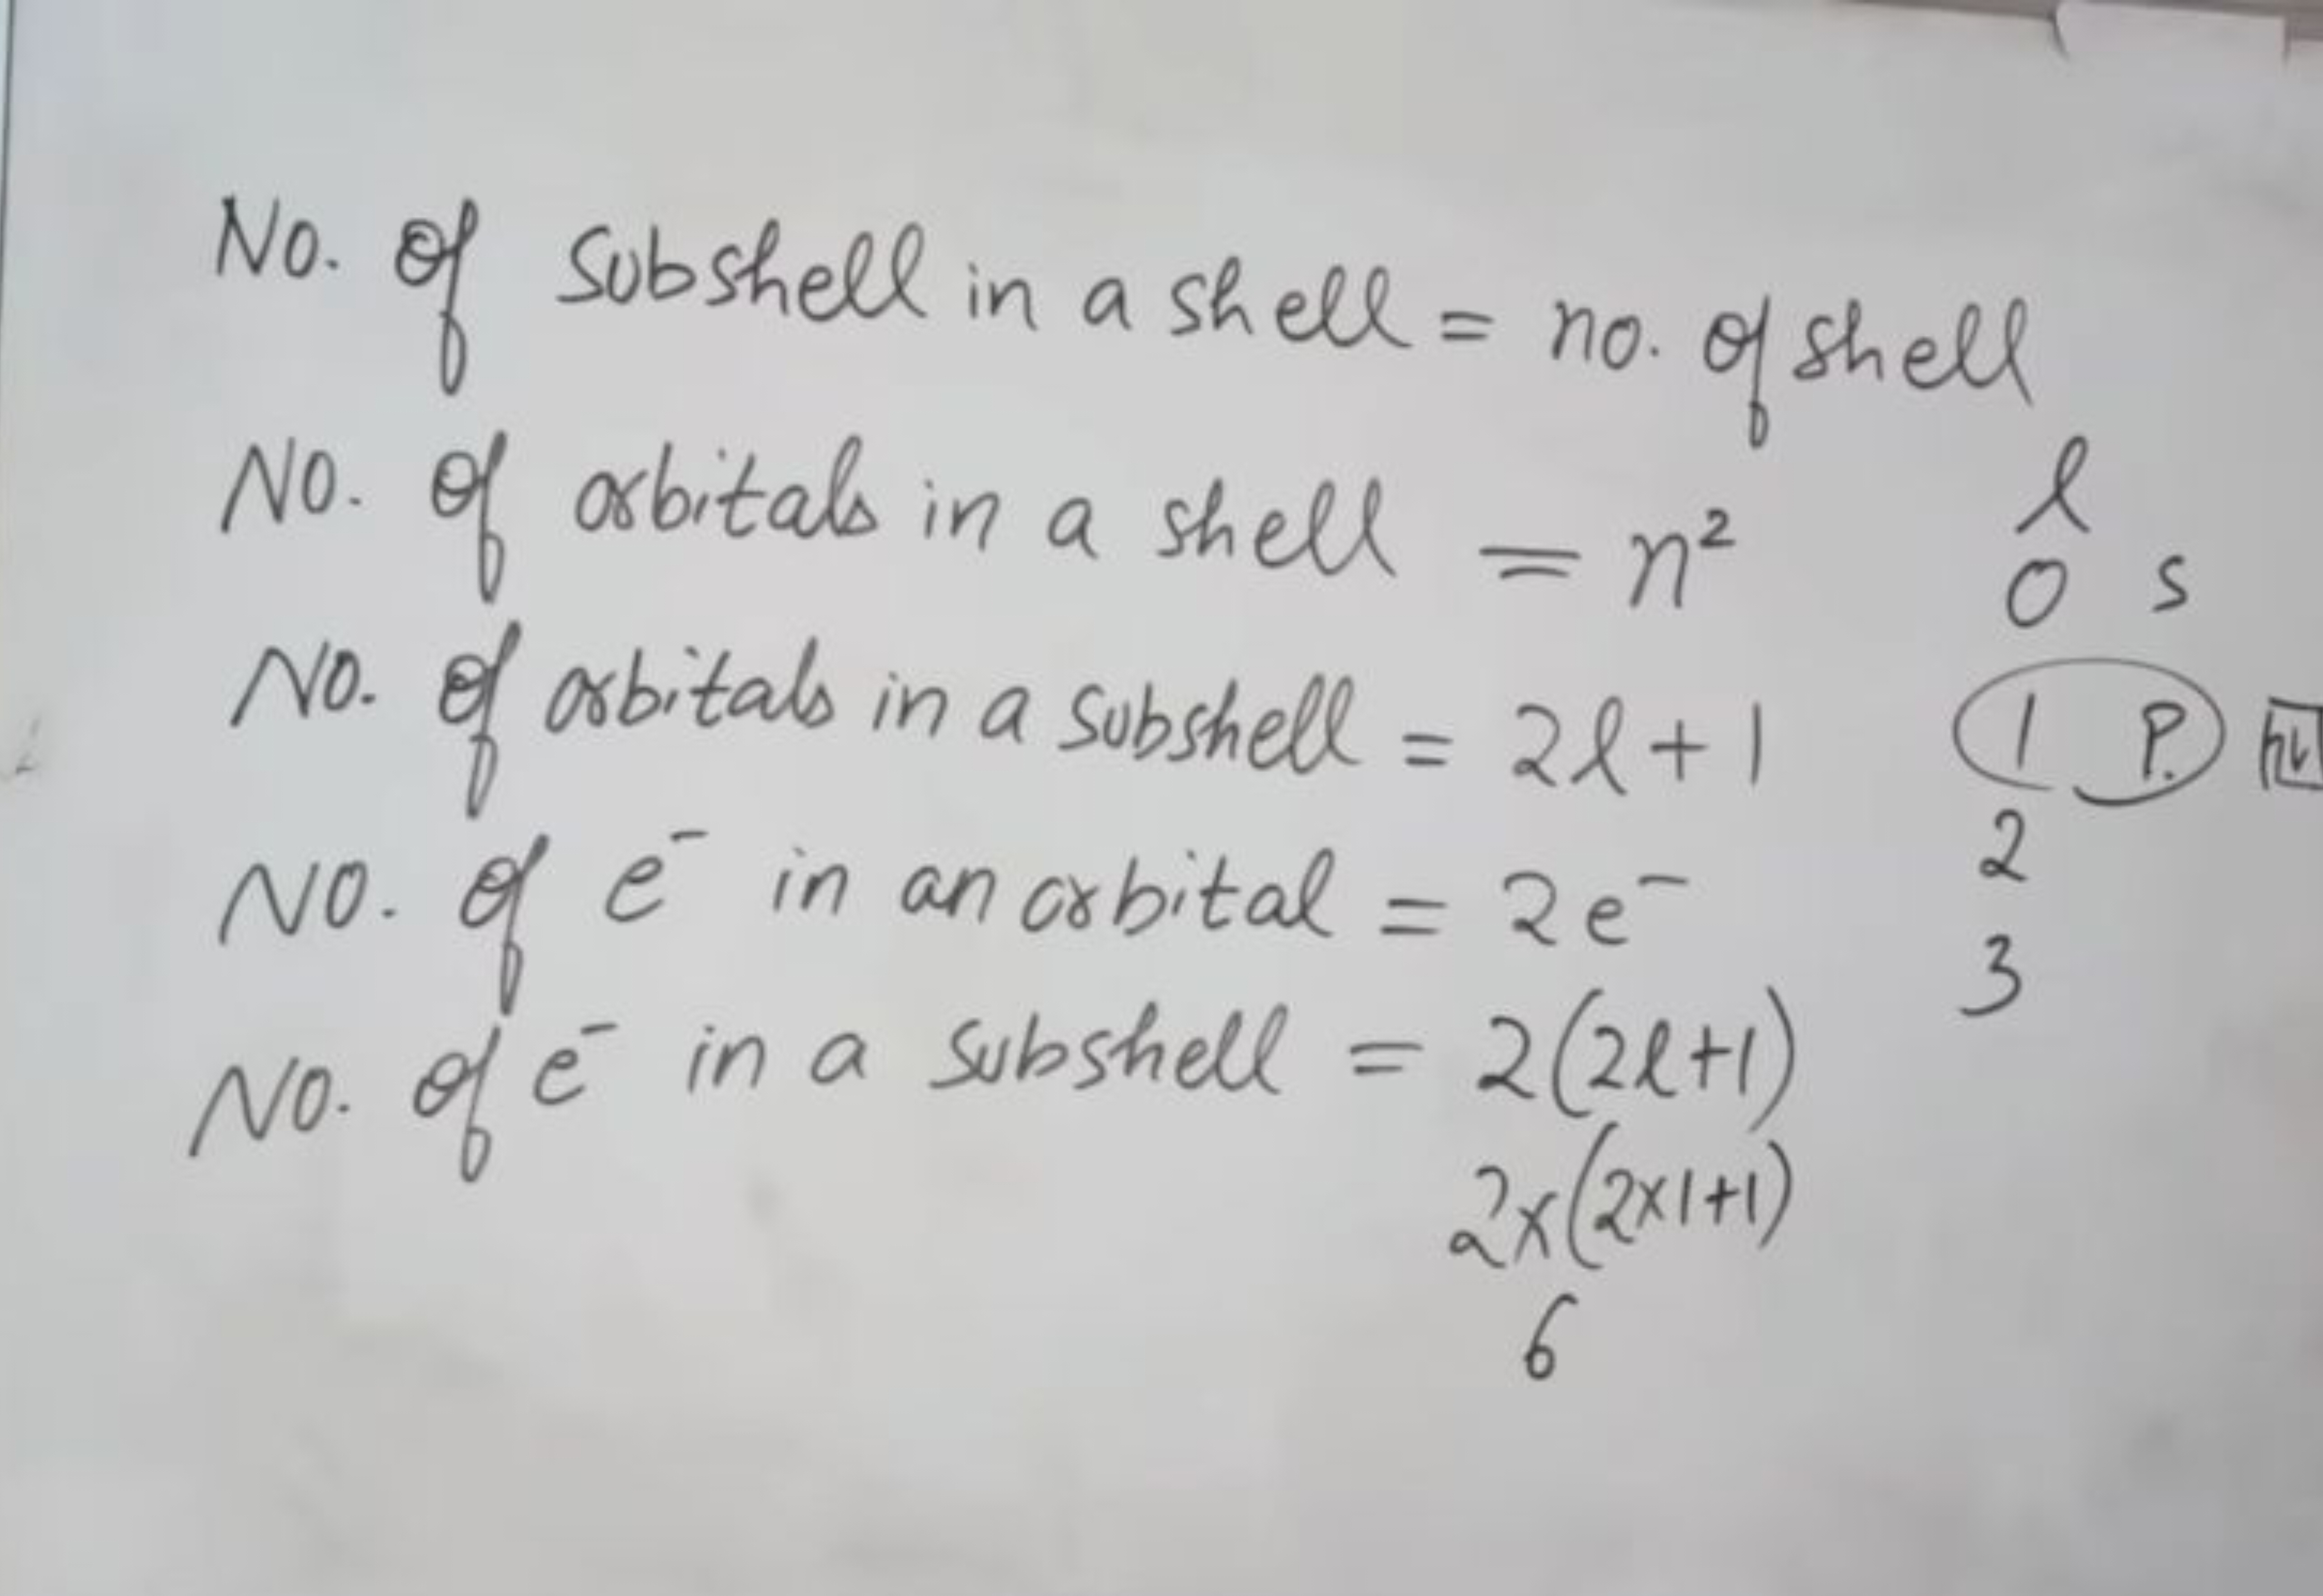 No. of subshell in a shell = no. of shell
No. of orbitals in a shell = n²
No. of orbitals in a subshell = 2l+1
No. of e⁻ in an orbital = 2e⁻
No. of e⁻ in a subshell = 2(2l+1)
2x(2x1+1)
6
l
0 s
1 P.
2
3